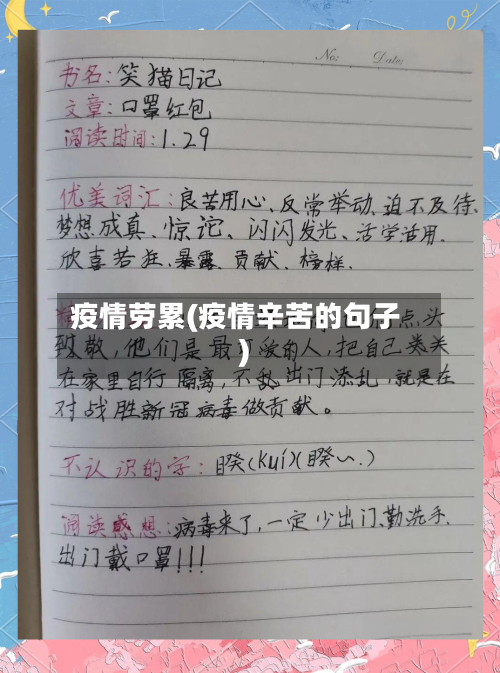 No:
Date:
书名:笑猫日记
文章:口罩红包
阅读时间:1.29
优美词汇:良苦用心、反常举动、迫不及待、
梦想成真、惊诧、闪闪发光、活学活用、
欣喜若狂、暴露、贡献、榜样、
疫情劳累(疫情辛苦的句子
)
点头
致敬,他们是最可爱的人,把自己
在家里自行隔离,不出门添乱,就是在
对战胜新冠病毒做贡献。
不认识的字:睽(kuí)(睽~.)
阅读感想:病毒来了,一定少出门、勤洗手、
出门戴口罩!!!